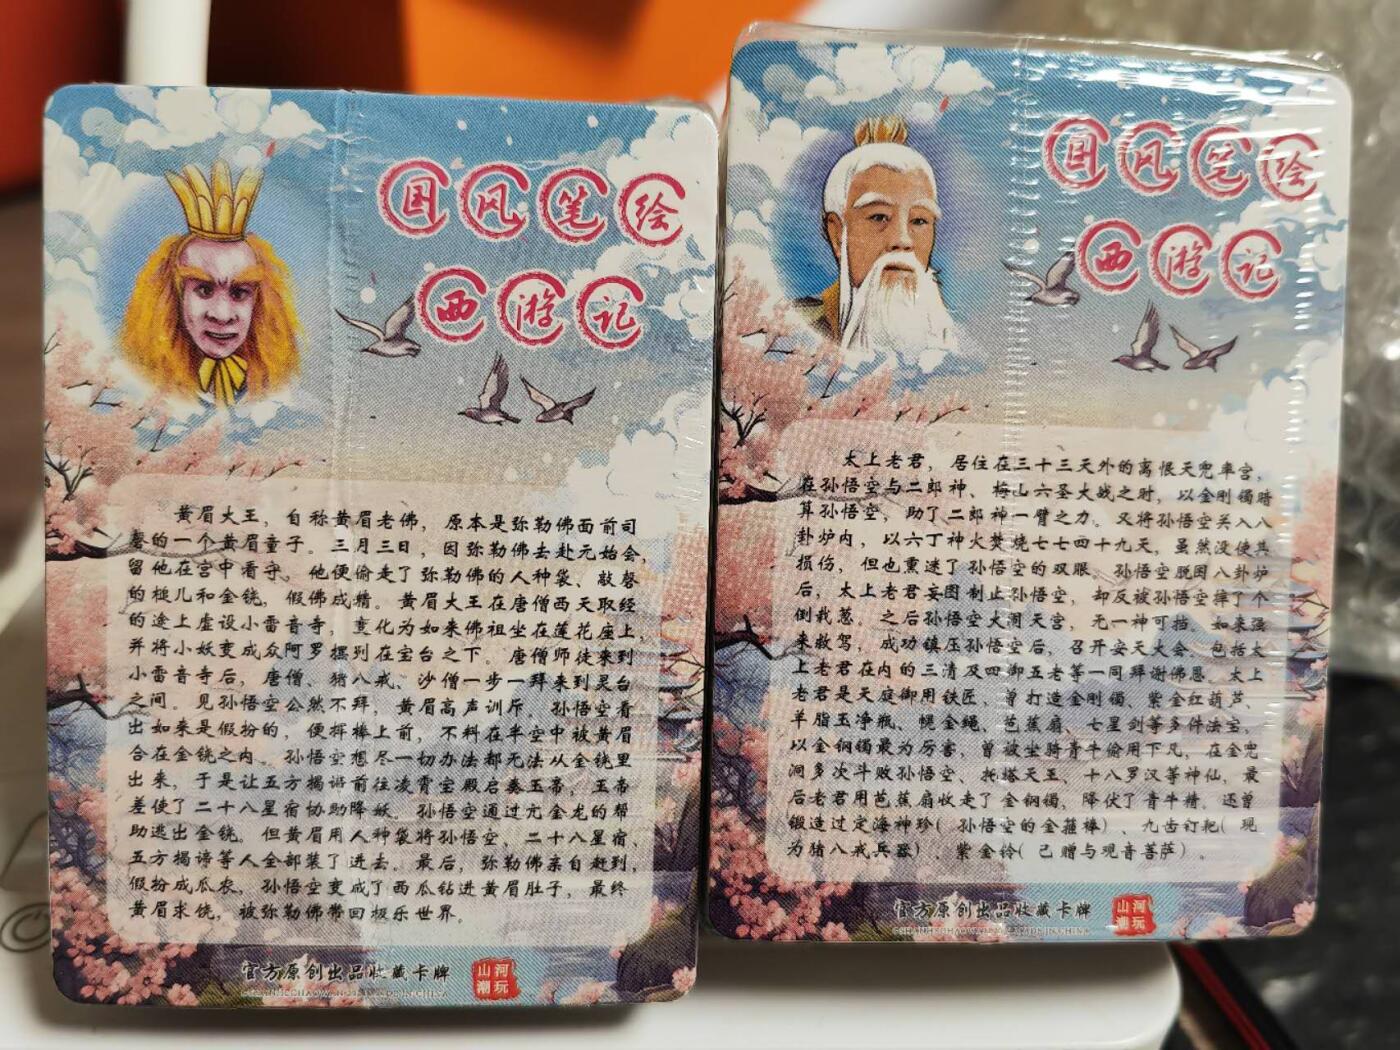 国风笔绘
西游记
黄眉大王，自称黄眉老佛，原本是弥勒佛面前司
磬的一个黄眉童子。三月三日，因弥勒佛去赴元始会，
留他在宫中看守。他便偷走了弥勒佛的人种袋、敲磬
的槌儿和金铙，假佛成精。黄眉大王在唐僧西天取经
的途上虚设小雷音寺，变化为如来佛祖坐在莲花座上，
并将小妖变成众阿罗摆列在宝台之下。唐僧师徒来到
小雷音寺后，唐僧、猪八戒、沙僧一步一拜来到灵台
之间。见孙悟空公然不拜，黄眉高声训斥。孙悟空看
出如来是假扮的，便挥棒上前，不料在半空中被黄眉
合在金铙之内。孙悟空想尽一切办法都无法从金铙里
出来，于是让五方揭谛前往凌霄宝殿启奏玉帝，玉帝
差使了二十八星宿协助降妖。孙悟空通过亢金龙的帮
助逃出金铙。但黄眉用人种袋将孙悟空，二十八星宿、
五方揭谛等人全部装了进去。最后，弥勒佛亲自赶到，
假扮成瓜农，孙悟空变成了西瓜钻进黄眉肚子，最终
黄眉求饶，被弥勒佛带回极乐世界。
官方原创出品收藏卡牌
山河
潮玩
国风笔绘
西游记
太上老君，居住在三十三天外的离恨天兜率宫，
在孙悟空与二郎神、梅山六圣大战之时，以金刚镯暗
算孙悟空，助了二郎神一臂之力。又将孙悟空关入八
卦炉内，以六丁神火焚烧七七四十九天，虽然没使其
损伤，但也熏迷了孙悟空的双眼。孙悟空脱困八卦炉
后，太上老君妄图制止孙悟空，却反被孙悟空摔了个
倒栽葱。之后孙悟空大闹天宫，无一神可挡。如来强
来救驾，成功镇压孙悟空后，召开安天大会，包括太
上老君在内的三清及四御五老等一同拜谢佛恩。太上
老君是天庭御用铁匠，曾打造金刚镯、紫金红葫芦、
羊脂玉净瓶、幌金绳、芭蕉扇、七星剑等多件法宝，
以金钢镯最为厉害，曾被坐骑青牛偷用下凡，在金兜
洞多次斗败孙悟空、托塔天王，十八罗汉等神仙，最
后老君用芭蕉扇收走了金钢镯，降伏了青牛精。还曾
锻造过定海神珍（孙悟空的金箍棒）、九齿钉耙（现
为猪八戒兵器）、紫金铃（已赠与观音菩萨）。
官方原创出品收藏卡牌
山河
潮玩